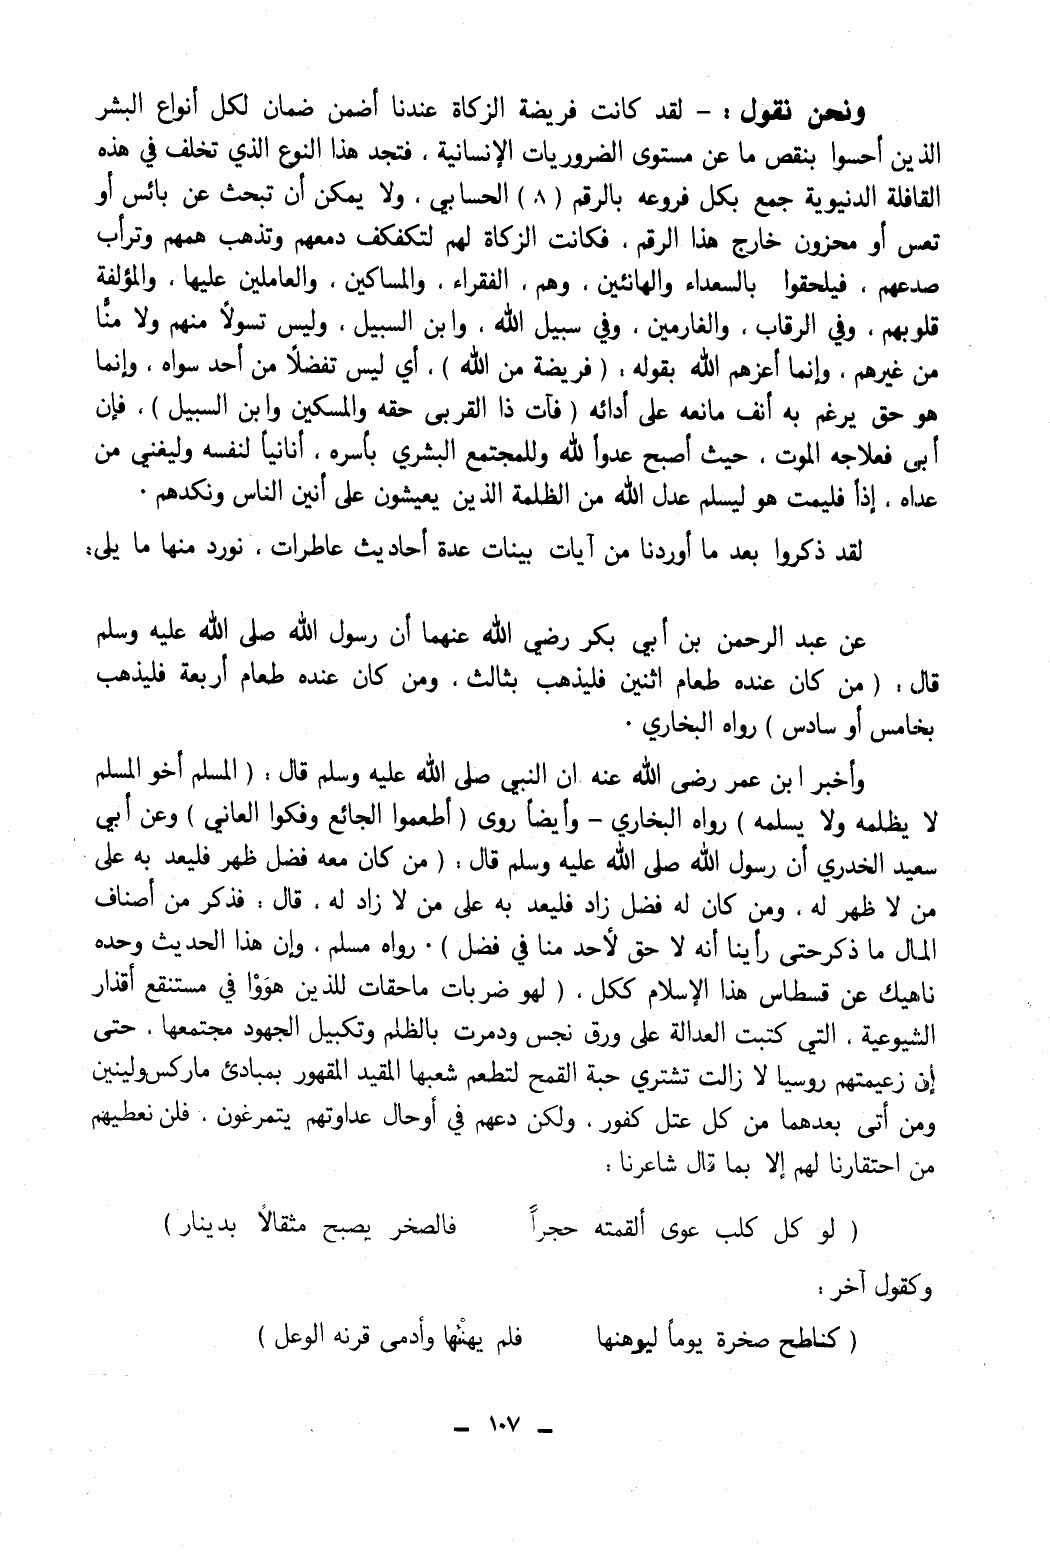 ونحن نقول : – لقد كانت فريضة الزكاة عندنا أضمن ضمان لكل أنواع البشر
الذين أحسوا بنقص ما عن مستوى الضروريات الإنسانية ، فتجد هذا النوع الذي تخلف في هذه
القافلة الدنيوية جمع بكل فروعه بالرقم ( ٨ ) الحسابي ، ولا يمكن أن تبحث عن بائس أو
تعس أو محزون خارج هذا الرقم ، فكانت الزكاة لهم لتكفكف دمعهم وتذهب همهم وترأب
صدعهم ، فيلحقوا بالسعداء والهانئين ، وهم ، الفقراء ، والمساكين ، والعاملين عليها ، والمؤلفة
قلوبهم ، وفي الرقاب ، والغارمين ، وفي سبيل الله ، وابن السبيل ، وليس تسولاً منهم ولا منًّا
من غيرهم ، وإنما أعزهم الله بقوله : ( فريضة من الله ) ، أي ليس تفضلاً من أحد سواه ، وإنما
هو حق يرغم به أنف مانعه على أدائه ( فآت ذا القربى حقه والمسكين وابن السبيل ) ، فإن
أبى فعلاجه الموت ، حيث أصبح عدواً لله وللمجتمع البشري بأسره ، أنانياً لنفسه وليغني من
عداه ، إذاً فليمت هو ليسلم عدل الله من الظلمة الذين يعيشون على أنين الناس ونكدهم .
لقد ذكروا بعد ما أوردنا من آيات بينات عدة أحاديث عاطرات ، نورد منها ما يلي :
عن عبد الرحمن بن أبي بكر رضي الله عنهما أن رسول الله صلى الله عليه وسلم
قال : ( من كان عنده طعام اثنين فليذهب بثالث ، ومن كان عنده طعام أربعة فليذهب
بخامس أو سادس ) رواه البخاري .
وأخبر ابن عمر رضى الله عنه ان النبي صلى الله عليه وسلم قال : ( المسلم أخو المسلم
لا يظلمه ولا يسلمه ) رواه البخاري – وأيضاً روى ( أطعموا الجائع وفكوا العاني ) وعن أبي
سعيد الخدري أن رسول الله صلى الله عليه وسلم قال : ( من كان معه فضل ظهر فليعد به على
من لا ظهر له ، ومن كان له فضل زاد فليعد به على من لا زاد له ، قال : فذكر من أصناف
المال ما ذكر حتى رأينا أنه لا حق لأحد منا في فضل ) . رواه مسلم ، وإن هذا الحديث وحده
ناهيك عن قسطاس هذا الإسلام ككل ، ( لهو ضربات ماحقات للذين هوَوْا في مستنقع أقذار
الشيوعية ، التي كتبت العدالة على ورق نجس ودمرت بالظلم وتكبيل الجهود مجتمعها ، حتى
إن زعيمتهم روسيا لا زالت تشتري حبة القمح لتطعم شعبها المقيد المقهور بمبادئ ماركس ولينين
ومن أتى بعدهما من كل عتل كفور ، ولكن دعهم في أوحال عداوتهم يتمرغون ، فلن نعطيهم
من احتقارنا لهم إلا بما قال شاعرنا :
( لو كل كلب عوى ألقمته حجراً فالصخر يصبح مثقالاً بدينار )
وكقول آخر :
( كناطح صخرة يوماً ليوهنها فلم يهنْها وأدمى قرنه الوعل )
– ١٠٧ –